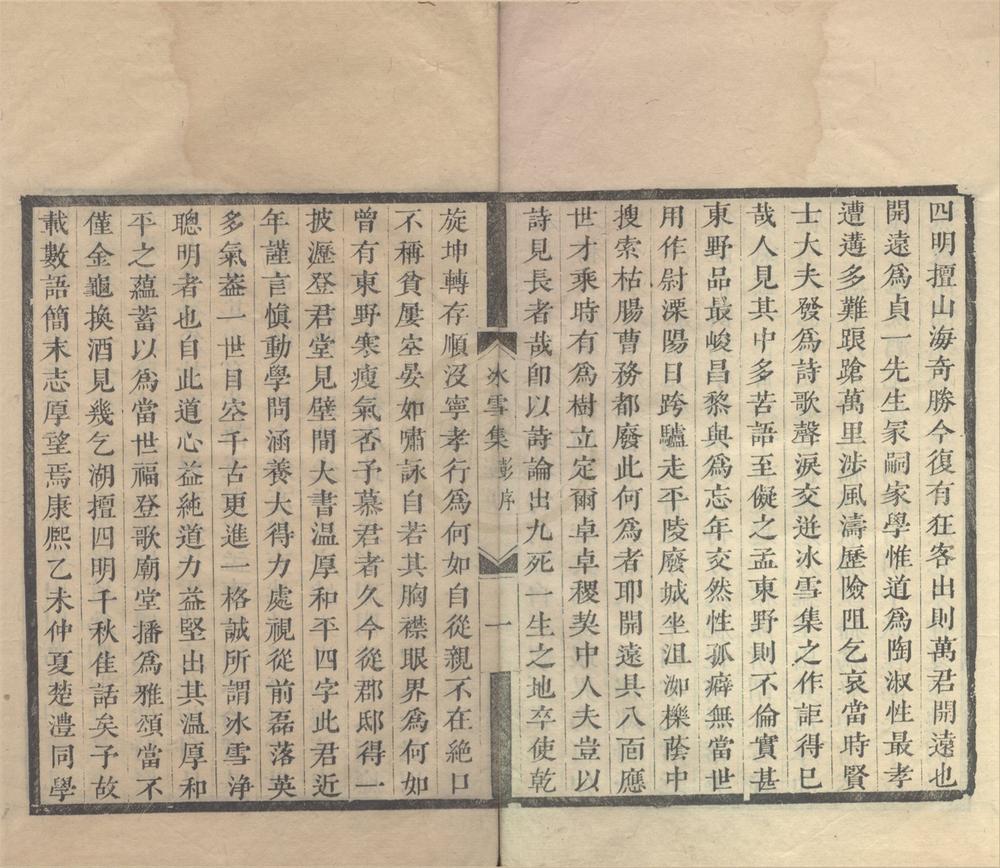 四明擅山海奇勝今復有狂客出則萬君開遠也
開遠爲貞一先生冢嗣家學惟道爲陶淑性最孝
遭遘多難踉蹌萬里涉風濤歷險阻乞哀當時賢
士大夫發爲詩歌聲淚交迸冰雪集之作詎得已
哉人見其中多苦語至儗之孟東野則不倫實甚
東野品最峻昌黎與爲忘年交然性孤癖無當世
用作尉溧陽日跨驢走平陵廢城坐沮洳櫟蔭中
搜索枯腸曹務都廢此何爲者耶開遠具八面應
世才乘時有爲樹立定爾卓卓稷契中人夫豈以
詩見長者哉卽以詩論出九死一生之地卒使乾
冰雪集 彭序 一
旋坤轉存順沒寧孝行爲何如自從親不在絕口
不稱貧屢空晏如嘯詠自若其胸襟眼界爲何如
曾有東野寒瘦氣否予慕君者久今從郡邸得一
披瀝登君堂見壁間大書温厚和平四字此君近
年謹言愼動學問涵養大得力處視從前磊落英
多氣葢一世目空千古更進一格誠所謂冰雪淨
聰明者也自此道心益純道力益堅出其温厚和
平之蘊蓄以爲當世福登歌廟堂播爲雅頌當不
僅金龜換酒見幾乞湖擅四明千秋佳話矣予故
載數語簡末志厚望焉康熙乙未仲夏楚澧同學